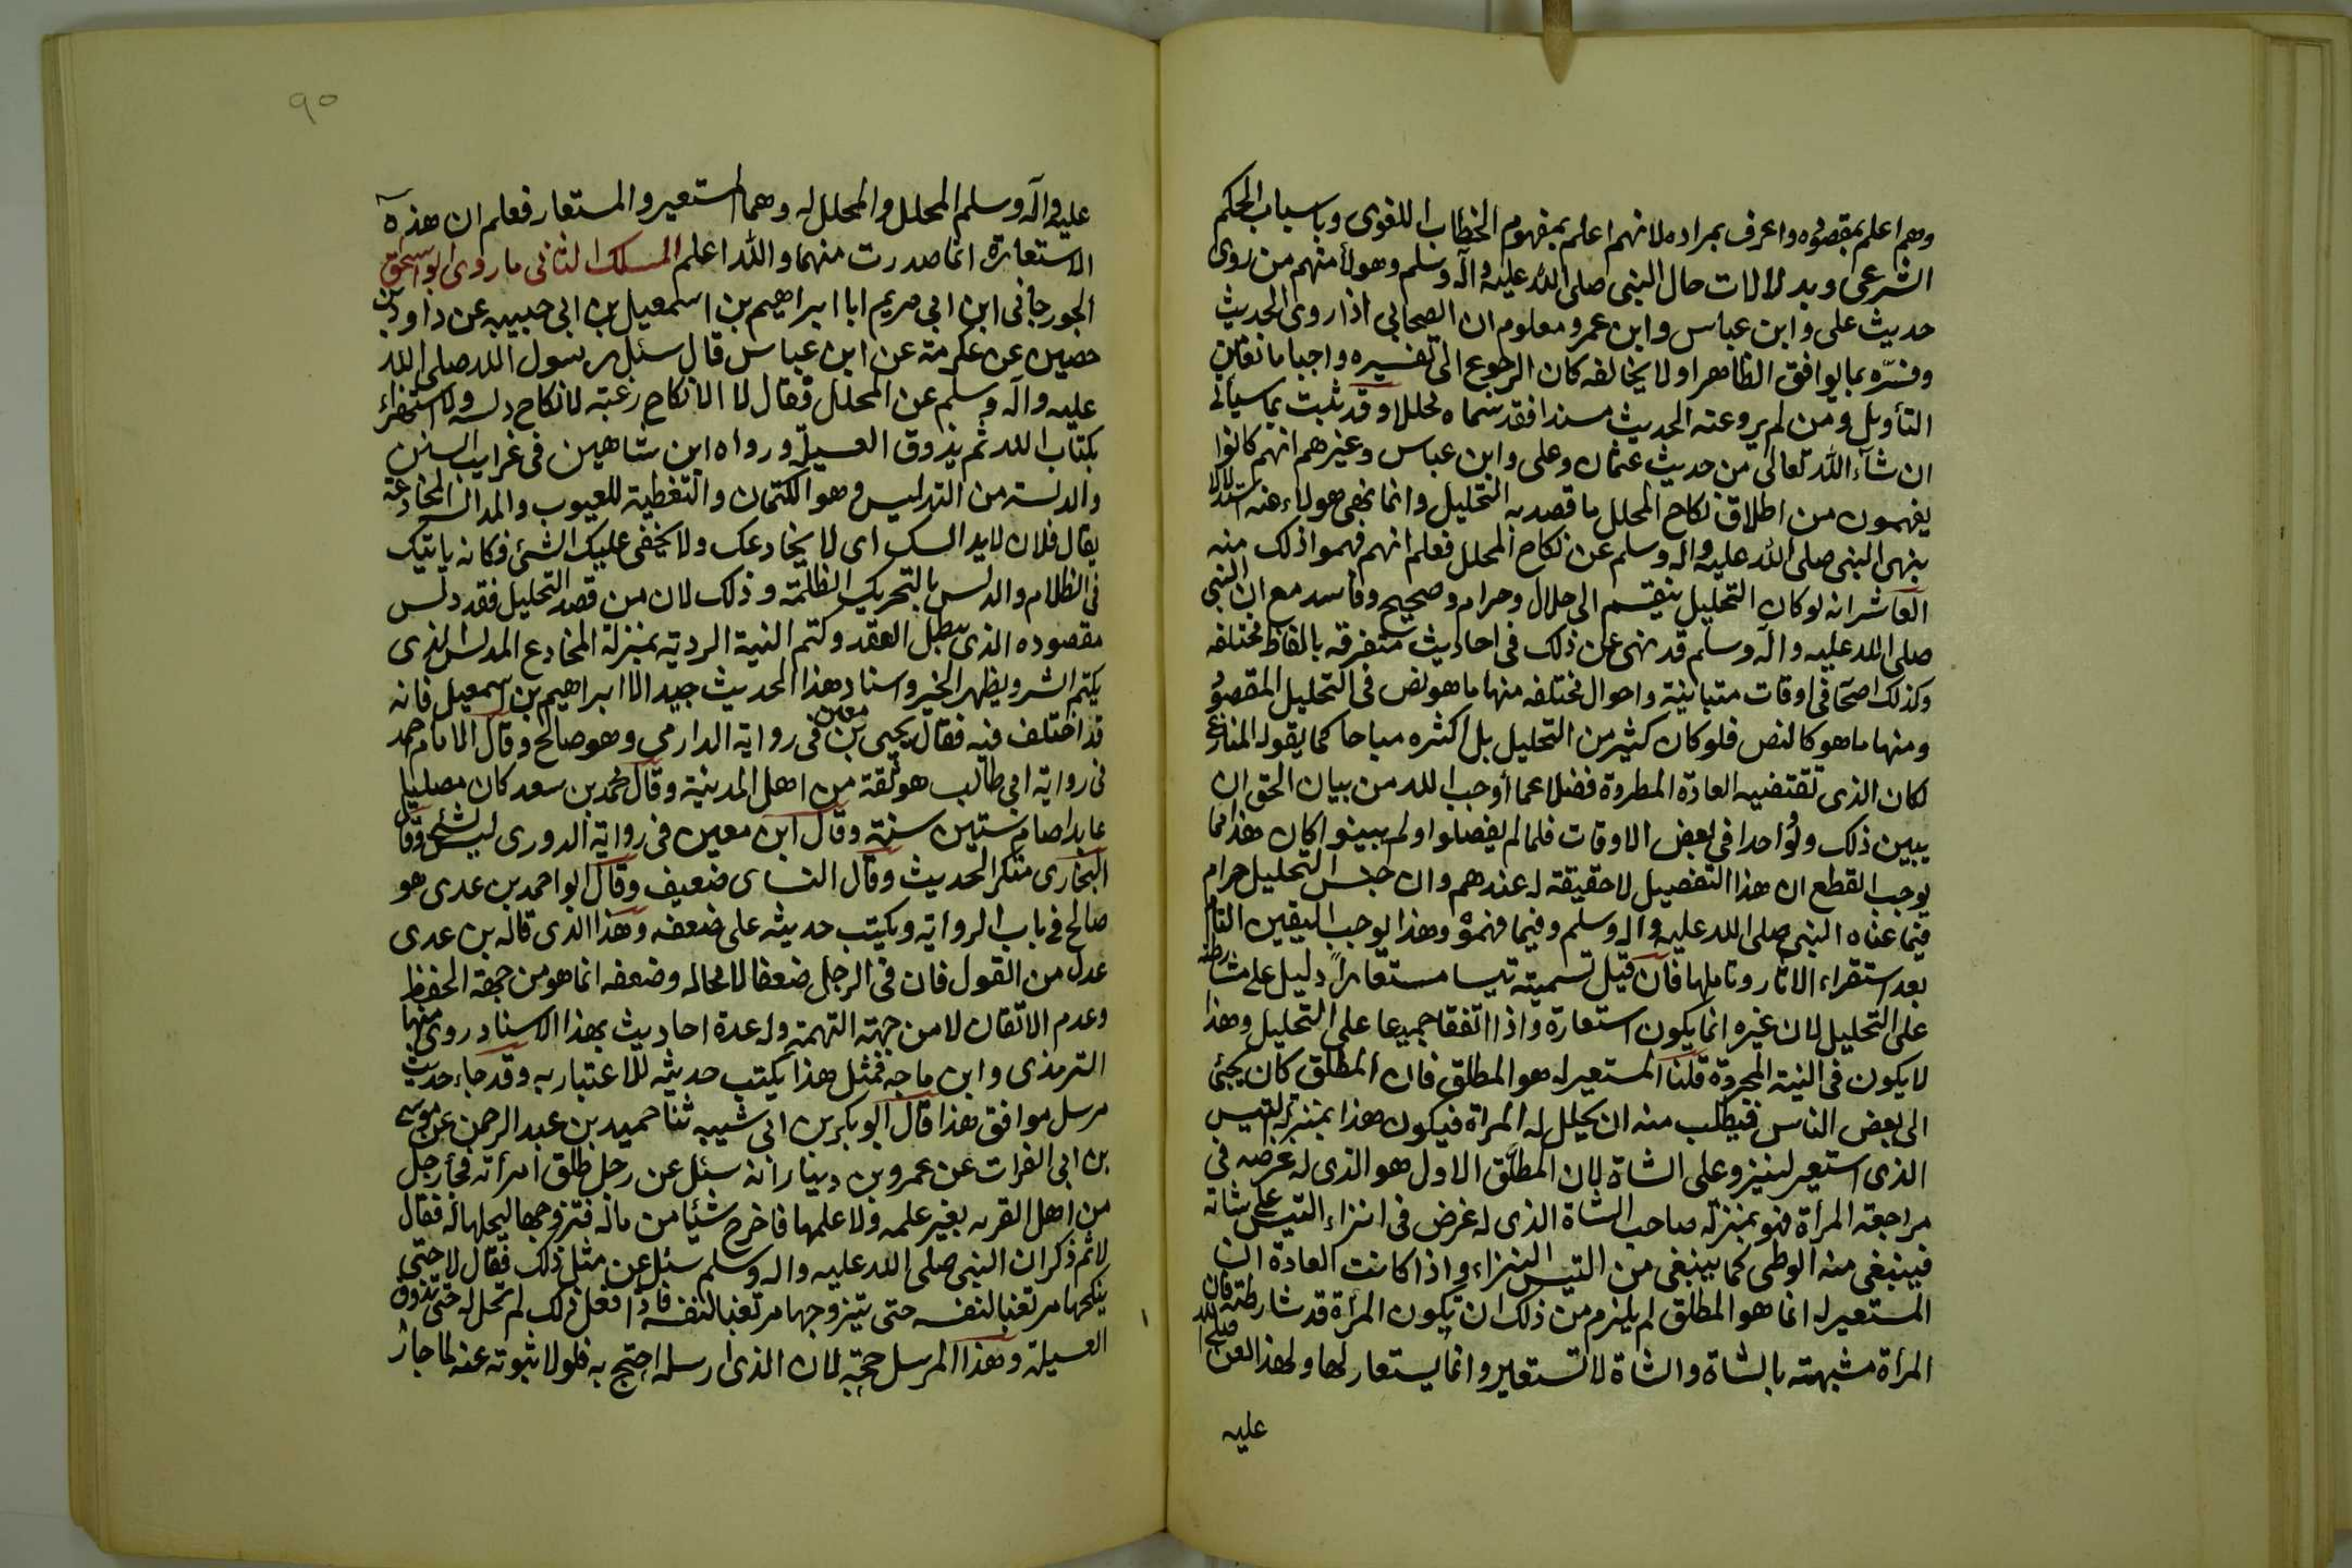 وهم اعلم بمقصوده واعرف بمراده لانهم اعلم بمفهوم الخطاب اللغوى وباسباب الحكم
الشرعى وبدلالات حال النبى صلى الله عليه وآله وسلم وهولأ منهم من روى
حديث على وابن عباس وابن عمر ومعلوم ان الصحابى اذا روى الحديث
وفسّره بما يوافق الظاهر اولا يخالفه كان الرجوع الى تفسيره واجبا مانعا من
التأويل ومن لم يرو عنه الحديث مسندا فقد سماه محللا وقد ثبت بما سيأتى
ان شآء الله تعالى من حديث عثمان وعلى وابن عباس وغيرهم انهم كانوا
يفهمون من اطلاق نكاح المحلل ما قصد به التحليل وانما نهى هولاء عنه استدلالا
بنهى النبى صلى الله عليه واله وسلم عن نكاح المحلل فعلم انهم فهموا ذلك منه
العاشر انه لو كان التحليل ينقسم الى حلال وحرام وصحيح وفاسد مع ان النبى
صلى الله عليه وآله وسلم قد نهى عن ذلك فى احاديث متفرقه بالفاظ مختلفه
وكذلك اصحآ فى اوقات متباينة واحوال مختلفه منها ما هو نص فى التحليل المقصود
ومنها ما هو كالنص فلو كان كثير من التحليل بل اكثره مباحا كما يقوله المنازع
لكان الذى تقتضيه العادة المطردة فضلا عما أوجب الله من بيان الحق ان
يبين ذلك ولو واحدا فى بعض الاوقات فلما لم يفصلوا ولم يبينوا كان هذا مما
يوجب القطع ان هذا التفصيل لا حقيقة له عندهم وان جنس التحليل حرام
فيما عناه النبى صلى الله عليه واله وسلم وفيما فهموه وهذا يوجب اليقين التام
بعد استقراء الاثار وتاملها فان قيل تسميته تيسا مستعاراً دليل على مشارطته
على التحليل لان غيره انما يكون استعارة واذا اتفقا جميعا على التحليل وهذا
لا يكون فى النية المجردة قلنا المستعير له هو المطلق فان المطلق كان يجئ
الى بعض الناس فيطلب منه ان يحلل له المراة فيكون هذا بمنزلة التيس
الذى استعير لينزو على الشاة لان المطلق الاول هو الذى له غرضه فى
مراجعة المرأة فهو بمنزلة صاحب الشاة الذى له غرض فى انزاء التيس على شاته
فينبغى منه الوطى كما ينبغى من التيس النزاء واذا كانت العادة ان
المستعير له انما هو المطلق لم يلزم من ذلك ان تكون المرأة قد شارطته فان
المرأة مشبهة بالشاة والشاة لا تستعير وانما يستعار لها ولهذا لعن صلى الله
عليه
٩٠
عليه وآله وسلم المحلل والمحلل له وهما المستعير والمستعار فعلم ان هذه
الاستعارة انما صدرت منهما والله اعلم المسلك الثانى ما روى ابو اسحق
الجورجانى ابن ابى مريم ابا ابراهيم بن اسمعيل بن ابى حبيبه عن داود بن
حصين عن عكرمة عن ابن عباس قال سئل رسول الله صلى الله
عليه وآله وسلم عن المحلل فقال لا الا نكاح رغبة لا نكاح دلسه ولا استهزاء
بكتاب الله ثم يذوق العسيلة ورواه ابن شاهين فى غرايب السنن
والدلسة من التدليس وهو الكتمان والتغطية للعيوب والمدالسه المخادعة
يقال فلان لا يدالسك اى لا يخادعك ولا يخفى عليك الشئ فكانه ياتيك
فى الظلام والدلس بالتحريك الظلمة وذلك لان من قصد التحليل فقد دلس
مقصوده الذى يبطل العقد وكتم النية الردية بمنزلة المخادع المدلس الذى
يكتم الشر ويظهر الخير واسناد هذا الحديث جيد الا ابراهيم بن اسمعيل فانه
قد اختلف فيه فقال يحيى بن معين فى رواية الدارمى وهو صالح وقال الامام احمد
فى رواية ابى طالب هو ثقة من اهل المدينة وقال محمد بن سعد كان مصليا
عابدا صام ستين سنة وقال ابن معين فى رواية الدورى ليس بشئ وقال
البخارى منكر الحديث وقال النساى ضعيف وقال ابو احمد بن عدى هو
صالح فى باب الرواية ويكتب حديثه على ضعفه وهذا الذى قاله بن عدى
عدل من القول فان فى الرجل ضعفا لا محاله وضعفه انما هو من جهة الحفظ
وعدم الاتقان لا من جهة التهمة وله عدة احاديث بهذا الاسناد روى منها
الترمذى وابن ماجه فمثل هذا يكتب حديثه للاعتبار به وقد جاء حديث
مرسل موافق هذا قال ابو بكر بن ابى شيبه ثنا حميد بن عبد الرحمن عن موسى
بن ابى الفرات عن عمرو بن دينار انه سئل عن رجل طلق امرأته فجأ رجل
من اهل القريه بغير علمه ولا علمها فاخرج شيئا من ماله فتزوجها ليحلها له فقال
لا ثم ذكر ان النبى صلى الله عليه واله وسلم سئل عن مثل ذلك فقال لا حتى
ينكحها مرتغبا لنفسه حتى يتزوجها مرتغبا لنفسه فاذا فعل ذلك لم تحل له حتى تذوق
العسيلة وهذا المرسل حجة لان الذى ارسله احتج به فلولا ثبوته عنه لما جاز